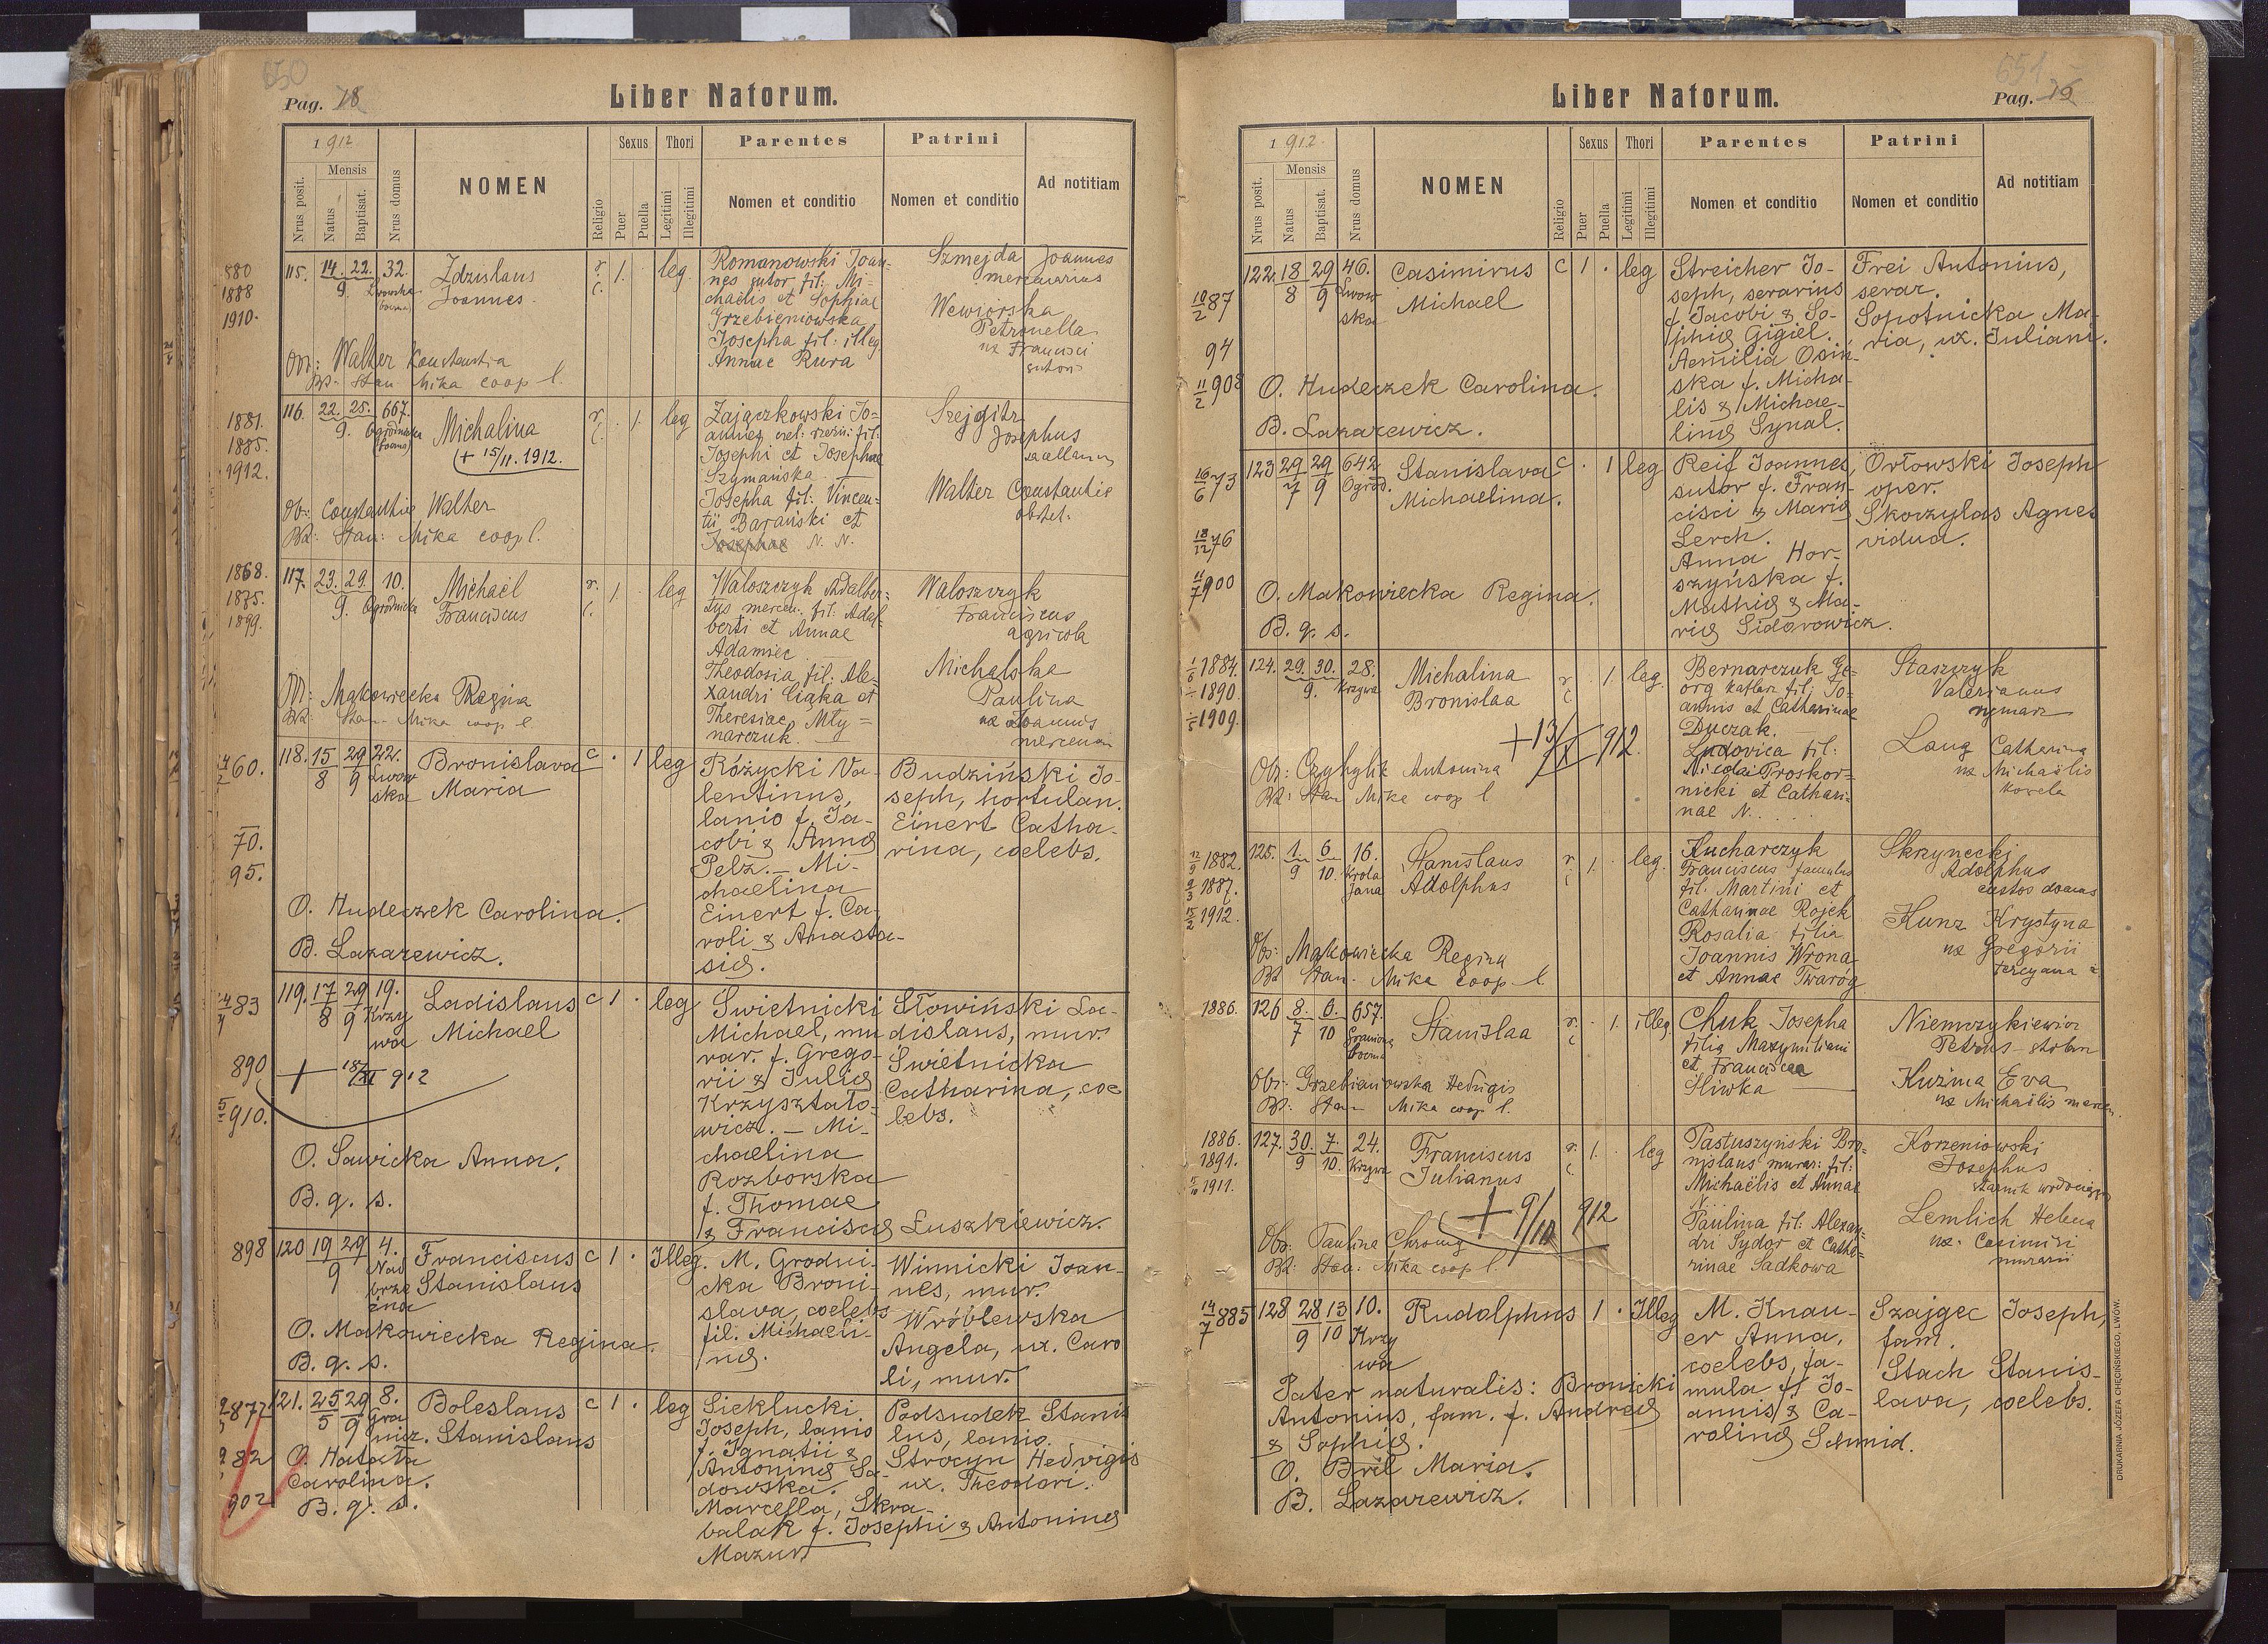 650
Pag. 78
Liber Natorum.
1912
Nrus posit.
Mensis
Natus
Baptisat.
Nrus domus
NOMEN
Religio
Sexus
Puer
Puella
Thori
Legitimi
Illegitimi
Parentes
Nomen et conditio
Patrini
Nomen et conditio
Ad notitiam
880
1888
1910.
115. 14. 22. 32.
9. Lwowska
Zdzislaus
Joannes
r. 1. leg.
c.
Romanowski Joan-
nes sutor fil: Mi-
chaelis et Sophiae
Grzebieniowska
Josepha fil: illeg
Annae Rura
Szmejda Joannes
mercenarius
Wewiórska
Petronella
ux Francisci
sutoris
Obr: Walter Konstantia
Bd: Stan Mika coop l.
1881.
1885.
1912.
116. 22. 25. 667.
9. Ogrodnicka
Michalina
(+ 15/11. 1912.
r. 1. leg
c.
Zajączkowski Jo-
annes
Josephi et Josephae
Szymańska
Josepha fil: Vincen-
tii Barański et
Josephae N. N.
Szejgitz
Josephus
Walter Constantie
obstet.
Ob: Constantie Walter
Bd: Stan: Mika coop l.
1868.
1875.
1899.
117. 23. 29. 10.
9. Ogrodnicka
Michaël
Franciscus
r. 1 leg
c.
Waloszczyk Adalber-
tus mercen. fil. Adal-
berti et Annae
Adamiec
Theodosia fil: Ale-
xandri Ciąka et
Theresiae Mły-
narczuk.
Waloszczyk
Franciscus
agricola
Michalska
Paulina
ux Joannis
mercenar
Ob: Makowiecka Regina
Bd: Stan. Mika coop l.
60.
70.
95.
118. 15 29 22.
8 9 Lwow
ska
Bronislava
Maria
c. · 1 leg
Różycki Va-
lentinus,
lanio f. Ja-
cobi & Annæ
Pelz. — Mi-
chaelina
Einert f. Ca-
roli & Anasta-
siæ.
Budziński Jo-
seph, hortulan.
Einert Catha-
rina, coelebs.
O. Hudeczek Carolina.
B. Lazarewicz.
83
890
910.
119. 17 29 19.
8 9 Krzy
wa
Ladislaus
Michael
c 1 · leg
+ 18/XI 912
Świetnicki
Michael, mu
rar. f. Grego-
rii & Juliæ
Krzyształo-
wicz. — Mi-
chaelina
Rozborska
f. Thomae
& Franciscæ Łuszkiewicz.
Słowiński La-
dislaus, mur.
Świetnicka
Catharina, coe
lebs.
O. Sawicka Anna.
B. q. s.
898
120 19 29 4.
9 Nad
brze
żna
Franciscus
Stanislaus
c 1 · Illeg.
M. Grodni-
cka Broni-
slava, coelebs
fil. Michaeli-
næ.
Winnicki Joan-
nes, mur.
Wróblewska
Angela, ux. Caro
li, mur.
O. Makowiecka Regina.
B. q. s.
877
82
902
121. 25 29 8.
5 9 Gra
nicz.
Boleslaus
Stanislaus
c 1 · leg
Sieklucki
Joseph, lanio
f. Ignatii &
Antoninæ Sa-
dowska.
Marcella, Skra-
balak f. Josephi & Antoninæ
Mazur
Podsudek Stanis
lus, lanio.
Stroczyn Hedvigis
ux. Theodori.
O. Hatała
Carolina.
B. q. s.
651
Pag. 79
Liber Natorum.
1912.
Nrus posit.
Mensis
Natus
Baptisat.
Nrus domus
NOMEN
Religio
Sexus
Puer
Puella
Thori
Legitimi
Illegitimi
Parentes
Nomen et conditio
Patrini
Nomen et conditio
Ad notitiam
10/2 87
94
11/2 908
122. 18 29 46.
8 9 Lwow
ska
Casimirus
Michael
c 1 · leg
Streicher Jo-
seph, serarius
f. Jacobi & So-
phiæ Gigiel.
Aemilia Osiń-
ska f. Micha-
lis & Michae-
linæ Synal.
Frei Antonius,
serar.
Sopotnicka Ma-
ria, ux. Juliani.
O. Hudeczek Carolina.
B. Lazarewicz.
16/6 73
18/12 76
11/7 900
123 29 29 642
7 9 Ogrod.
Stanislava
Michaelina.
c. · 1 leg
Reif Joannes,
sutor f. Fran-
cisci & Mariæ
Lerch.
Anna Hor-
szyńska f.
Mathiæ & Ma-
riæ Sidorowicz.
Orłowski Joseph
oper.
Skorzylas Agnes
vidua.
O. Makowiecka Regina.
B. q. s.
1884.
1890
1909.
124. 29. 30. 28.
9. Krzywa
Michalina
Bronislaa
r 1. leg.
c
+13/X 912.
Bernarczuk Ge-
org kaflarz fil: Jo-
annis et Catharinae
Duczak.
Ludovica fil:
Nicolai Proskor-
nicki et Cathari-
nae N. . . . .
Staszczyk
Valerianus
rymarz
Laug Catharina
ux Michaëlis
Obs: Czyhylik Antonina
Bd: Stan Mika coop l
1882.
1887.
1912.
125. 1. 6 16.
9 10. Króla
Jana
Stanislaus
Adolphus
r. 1. leg.
c
Kucharczyk
Franciscus famulus
fil. Martini et
Catharinae Rojek
Rosalia filia
Joannis Wrona
et Annae Twaróg
Skrzynecki
Adolphus
custos domus
Kunz Krystyna
ux Gregorii
Obs: Makowiecka Regina
Bd Stan. Mika coop l
1886.
126 8. 6. 657.
7 10
Stanislaa
r. · 1. illeg.
c
Chuk Josepha
filia Maxymiliani
et Franciscae
Śliwka
Niemczykiewicz
Petrus stolarz
Kuźma Eva
ux Michaëlis mercen.
Obs: Grzebieniowska Hedvigis
Bd: Stan Mika coop l.
1886.
1891.
1911.
127. 30. 7. 24.
9 10. Krzywa
Franciscus
Julianus
r. 1. · leg
c.
+ 9/10 912
Pastuszyński Bro-
nislaus murar: fil:
Michaëlis et Annae
N.
Paulina fil: Alexan-
dri Sydor et Catha-
rinae Sadkowa
Korzeniowski
Josephus
Lemlich Helena
ux. Casimiri
murarii
Obs: Paulina Chromy
Bd: Stan: Mika coop l.
14/7 885
128 28 13 10.
9 10 Krzy
wa
Rudolphus 1 · Illeg
M. Knau-
er Anna,
coelebs, fa-
mula f. Jo-
annis & Ca-
rolinæ Schmid.
Szajgec Joseph,
fam.
Stach Stanis-
lava, coelebs.
Pater naturalis: Bronicki
Antonius, fam. f. Andreæ
& Sophiæ.
O. Bril Maria.
B. Lazarewicz.
DRUKARNIA JÓZEFA CHĘCIŃSKIEGO, LWÓW.